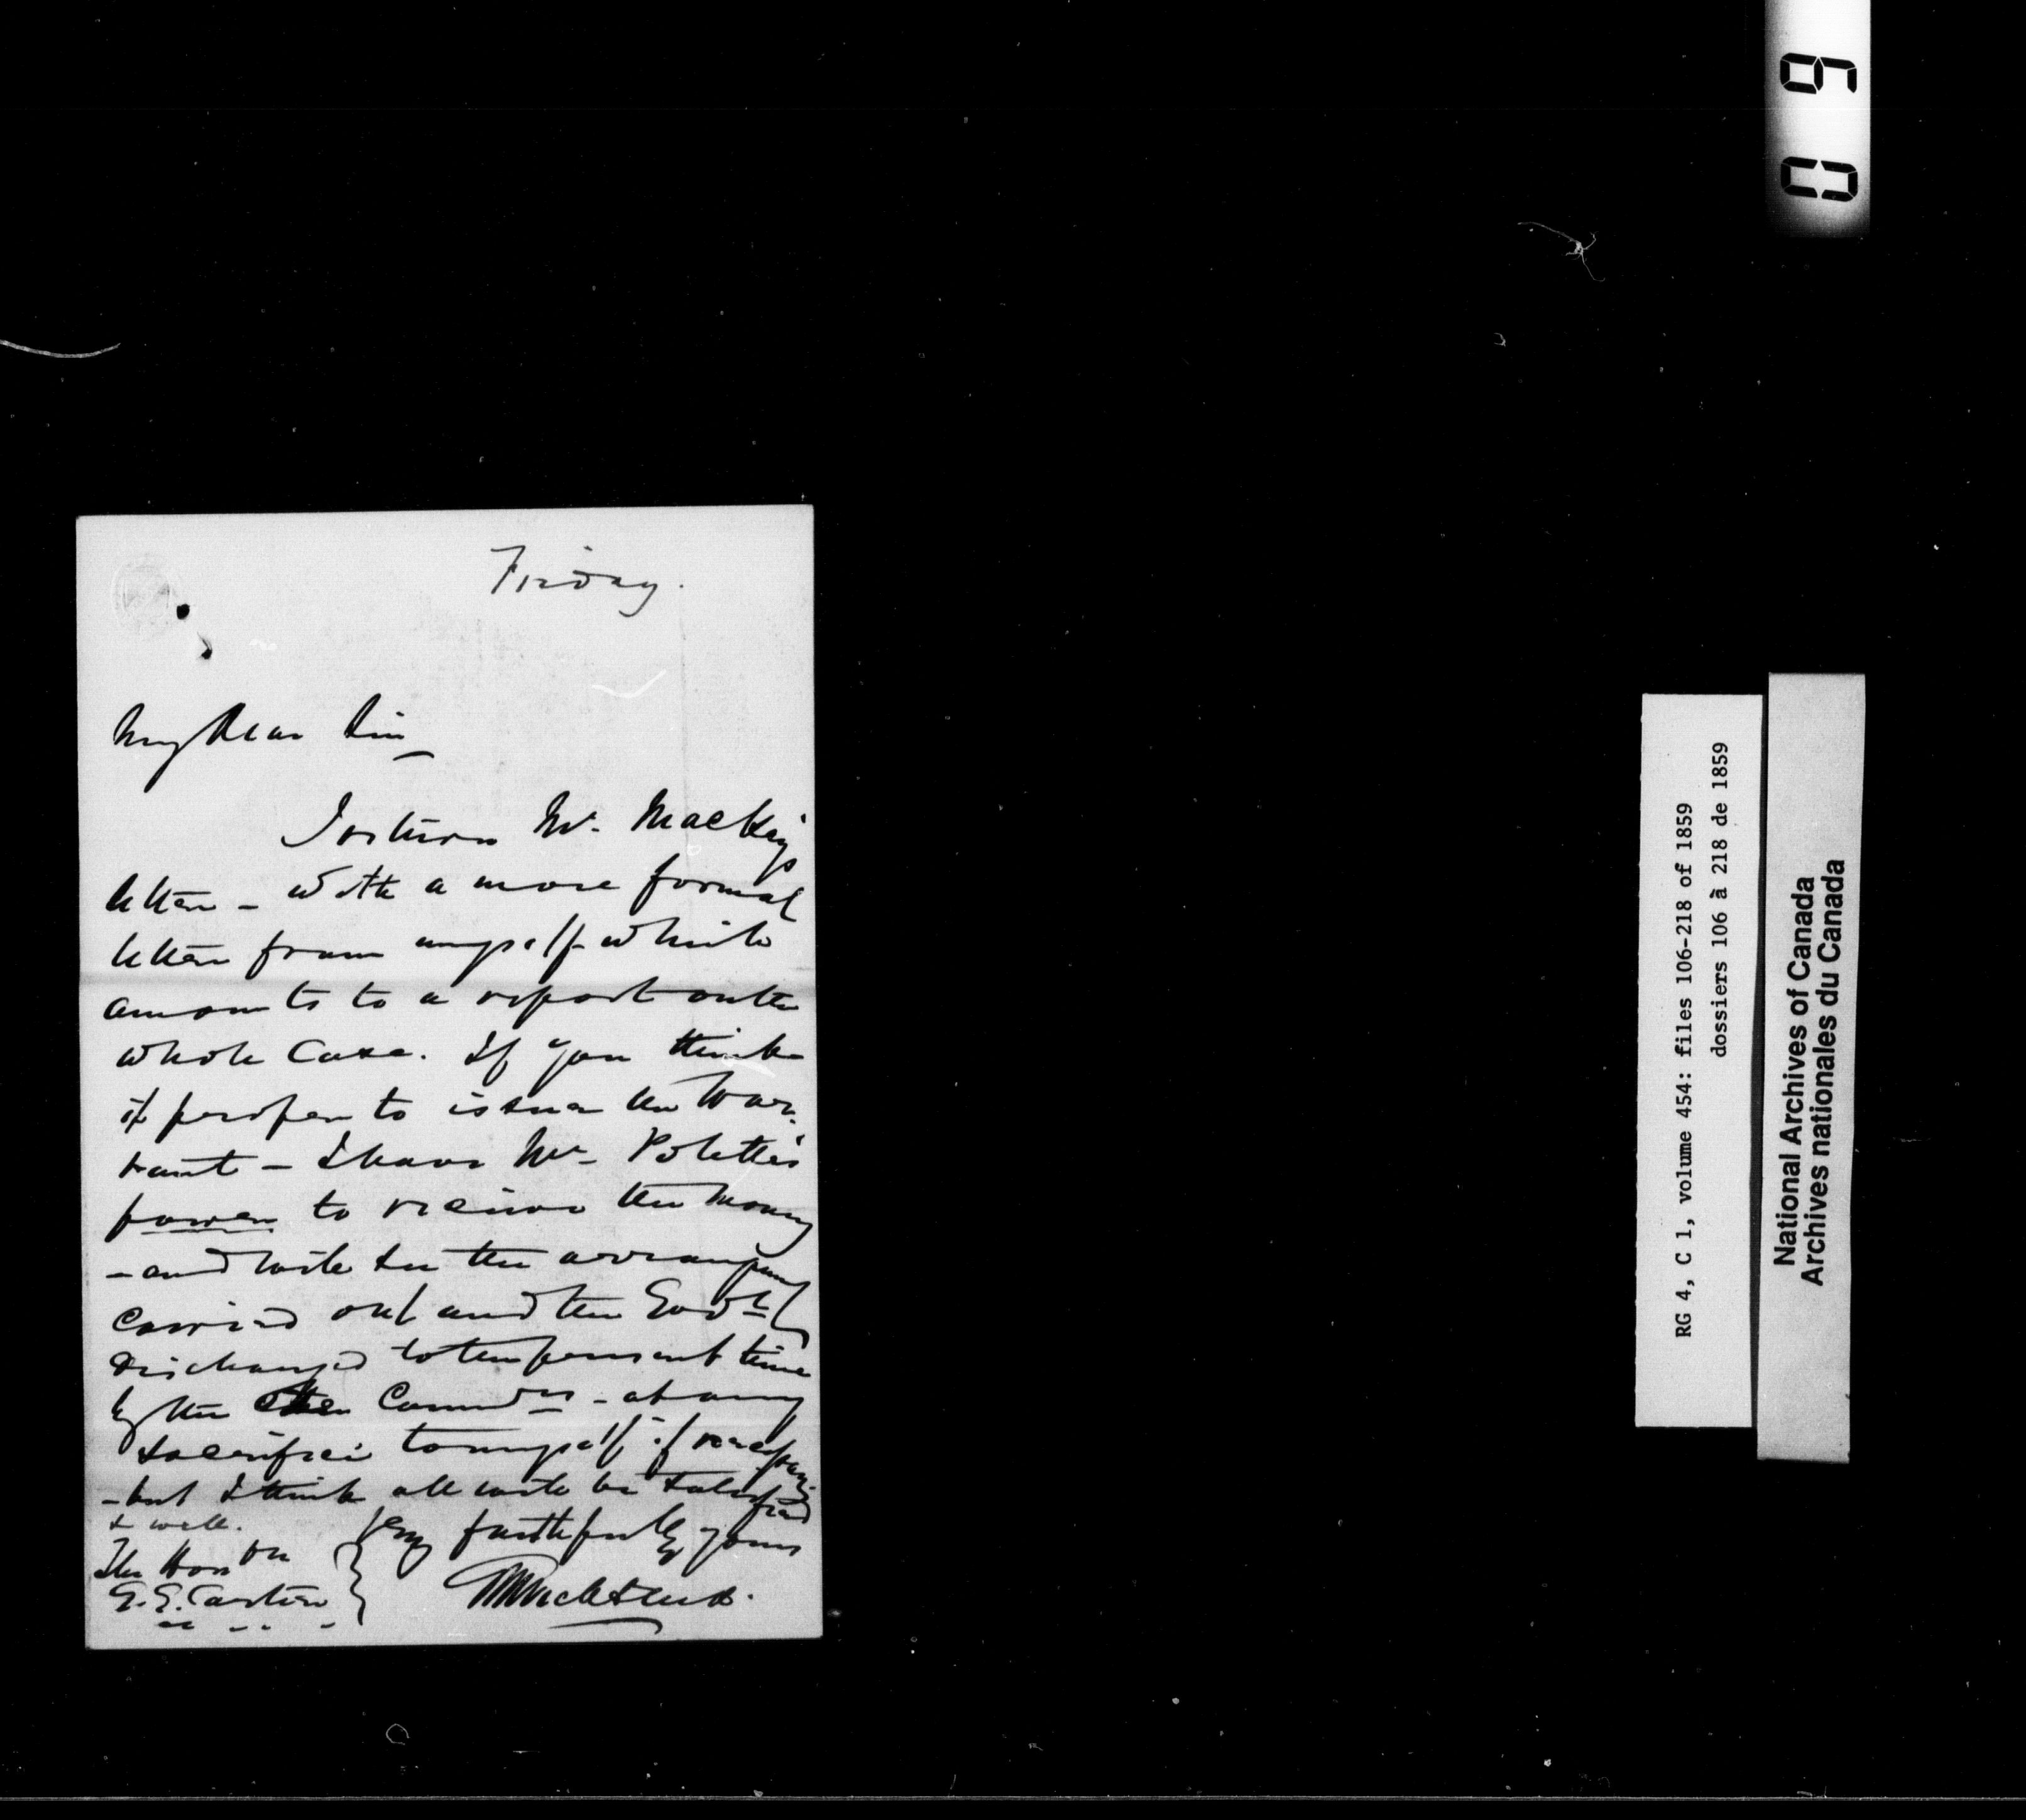 Friday.
My dear Sir
I return Mr. MacKay's
letter - with a more formal
letter from myself which
amounts to a report on the
whole Case. If you think
it proper to issue the War-
rant - I have Mr. Polette's
power to receive the money
- and will see the arrangement
carried out and the Govt.
discharged to the present time
by the Commrs. - at any
sacrifice to myself if necessary
- but I think all will be satisfied
& well.
Very faithfully yours
The Honble
G. E. Cartier
09
RG 4, C 1, volume 454: files 106-218 of 1859
dossiers 106 à 218 de 1859
National Archives of Canada
Archives nationales du Canada